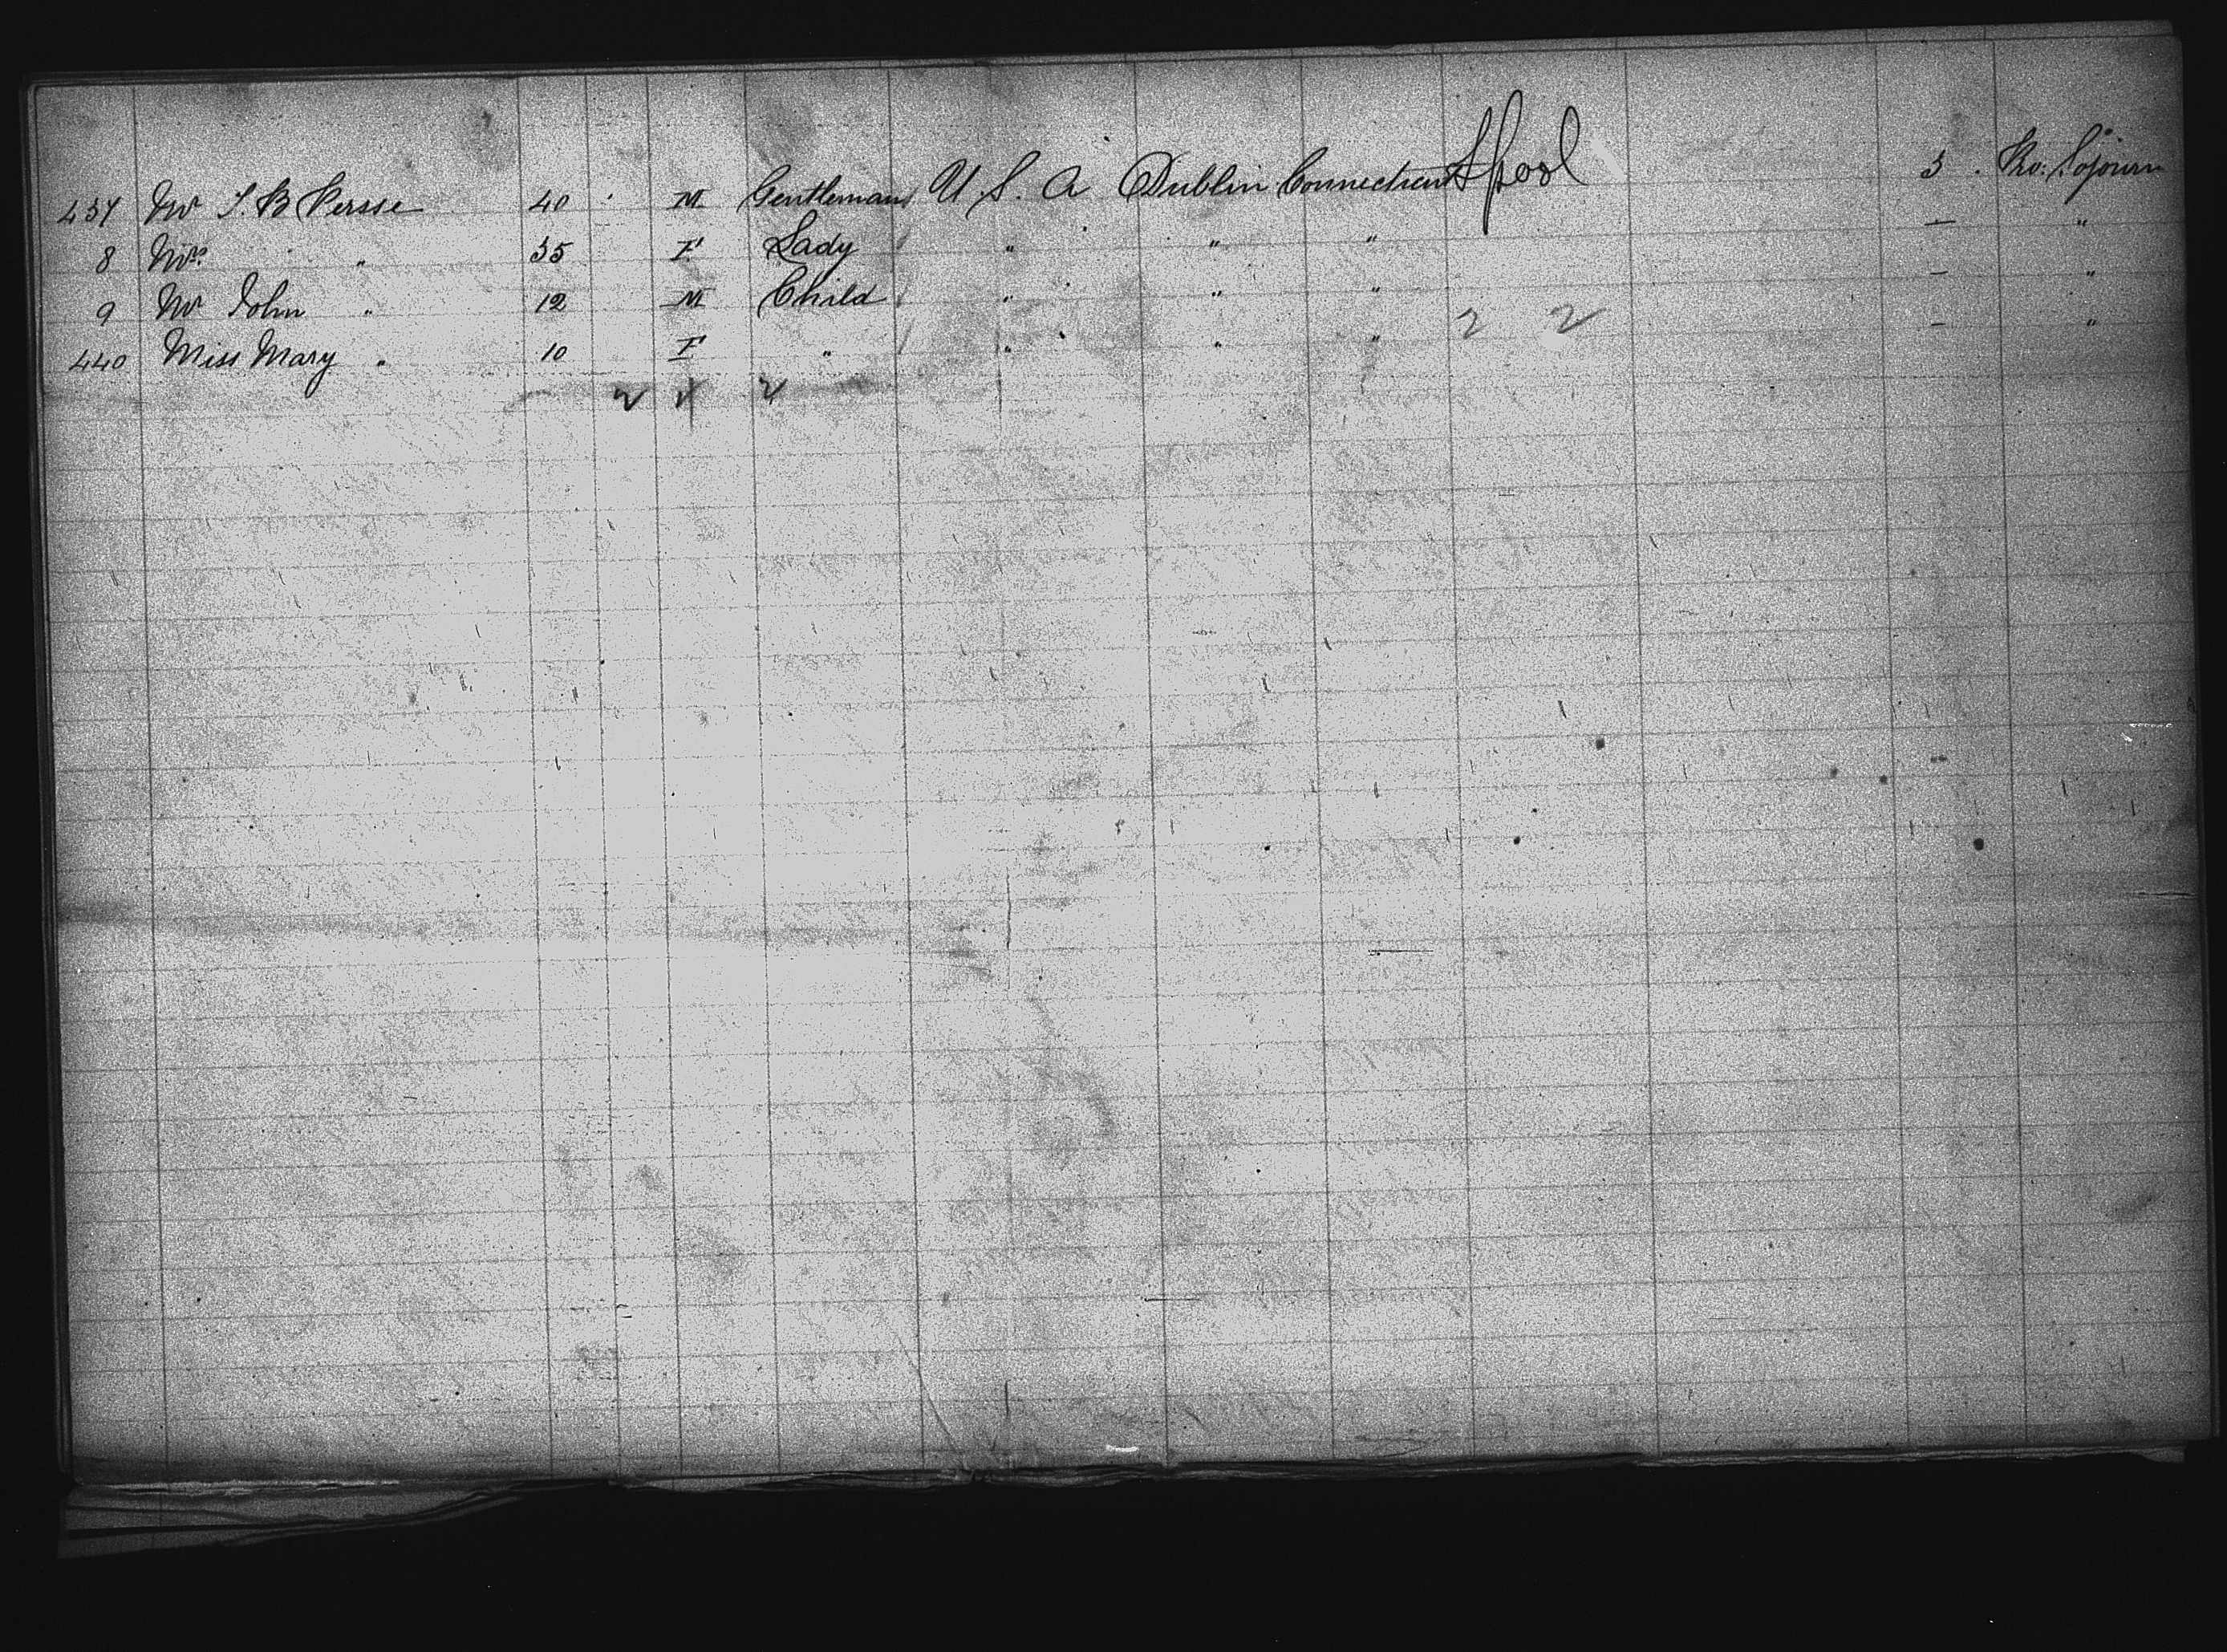 437 Mr S. B Persse 40 M Gentleman U S. A Dublin Connecticut Lpool 3 Pro: Sojourn
8 Mrs " 35 F Lady " " " — "
9 Mr John " 12 M Child " " " — "
440 Miss Mary " 10 F " " " " 2 2 — "
2 4 2